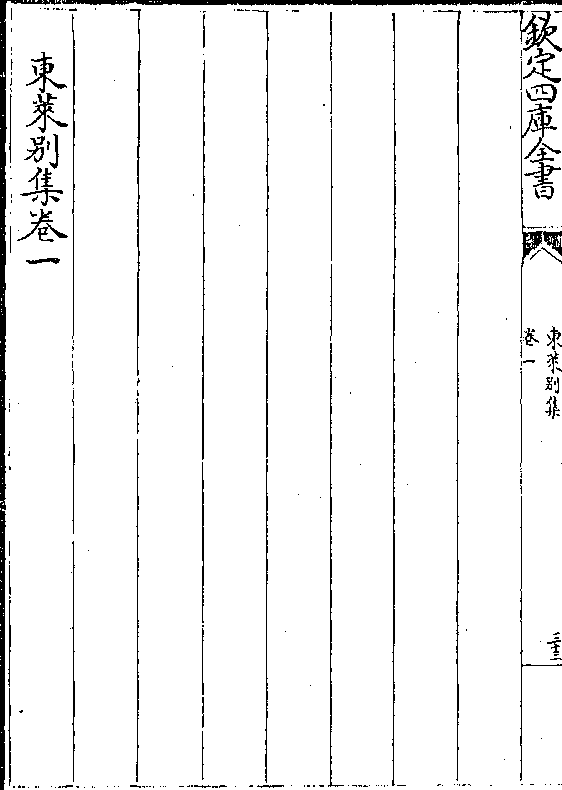 欽定四庫全書
東萊別集
卷一
三十三
東萊別集卷一